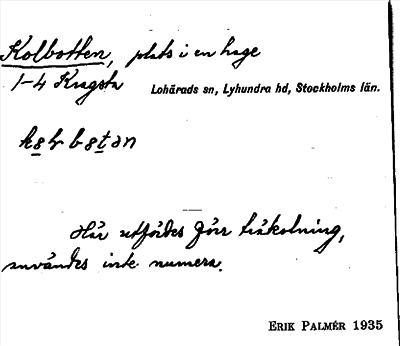 Kolbotten, plats i en hage
1-4 Kragsta
Lohärads sn, Lyhundra hd, Stockholms län.
Här utfördes förr träkolning,
användes inte numera.
ERIK PALMÉR 1935